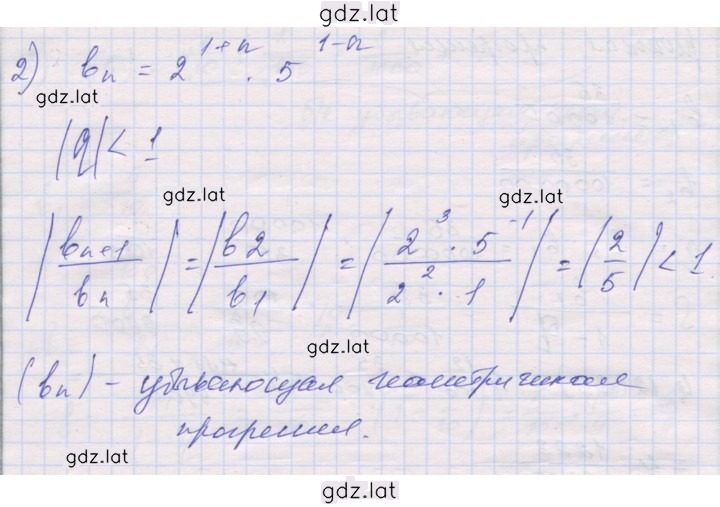 gdz.lat
2) bₙ = 2¹⁺ⁿ · 5¹⁻ⁿ
gdz.lat
|q| < 1
gdz.lat gdz.lat
|bₙ₊₁ / bₙ| = |b2 / b1| = |2³ · 5⁻¹ / 2² · 1| = |2/5| < 1
gdz.lat
(bₙ) - убывающая геометрическая
прогрессия.
gdz.lat
gdz.lat